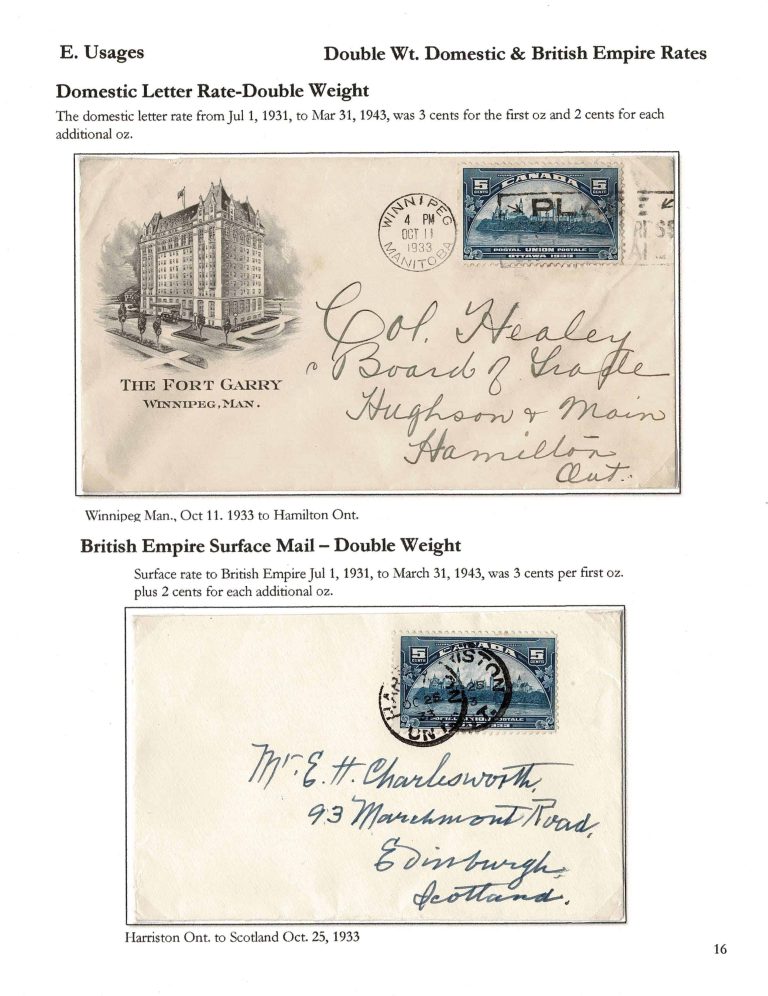 E. Usages
Double Wt. Domestic & British Empire Rates
Domestic Letter Rate-Double Weight
The domestic letter rate from Jul 1, 1931, to Mar 31, 1943, was 3 cents for the first oz and 2 cents for each
additional oz.
WINNIPEG
4 PM
OCT 11
1933
MANITOBA
CANADA
5 CENTS
5 CENTS
PL
POSTAL UNION POSTALE
OTTAWA 1933
THE FORT GARRY
WINNIPEG, MAN.
Col. Healey
Board of Trade
Hughson & Main
Hamilton
Ont.
Winnipeg Man., Oct 11. 1933 to Hamilton Ont.
British Empire Surface Mail – Double Weight
Surface rate to British Empire Jul 1, 1931, to March 31, 1943, was 3 cents per first oz.
plus 2 cents for each additional oz.
CANADA
5 CENTS
5 CENTS
OC 25
33
ONT
Mr. E. H. Charlesworth,
93 Marchmont Road,
Edinburgh,
Scotland.
Harriston Ont. to Scotland Oct. 25, 1933
16